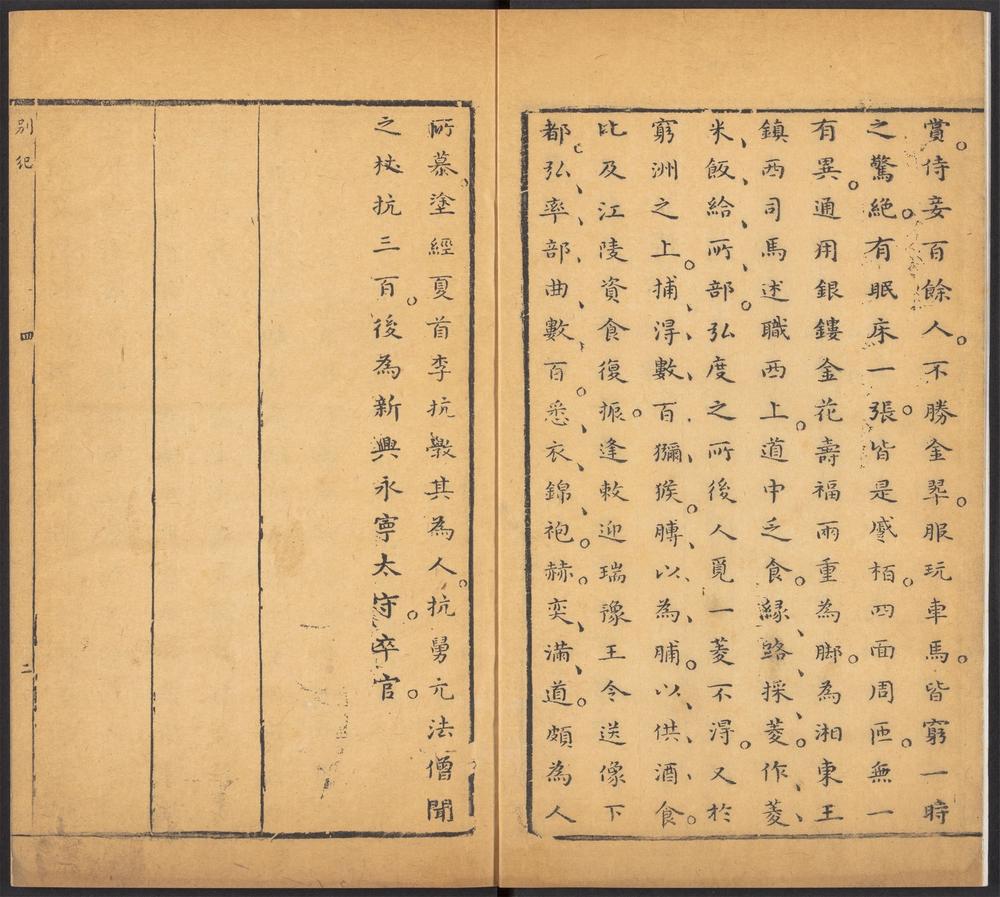 賞侍妾百餘人不勝金翠服玩車馬皆窮一時
之驚絕有眠床一張皆是蹙栢四面周匝無一
有異通用銀鏤金花壽福兩重為脚為湘東王
鎮西司馬述職西上道中乏食緑路採菱作菱
米飯給所部弘度之所後人覓一菱不得又於
窮洲之上捕得數百獼猴膊以為脯以供酒食
比及江陵資食復振逢敕迎瑞豫王令送像下
都弘率部曲數百悉衣錦袍赫奕滿道頗為人
所慕塗經夏首李抗毀其為人抗舅元法僧聞
之杖抗三百後為新興永寧太守卒官
別紀 四 二